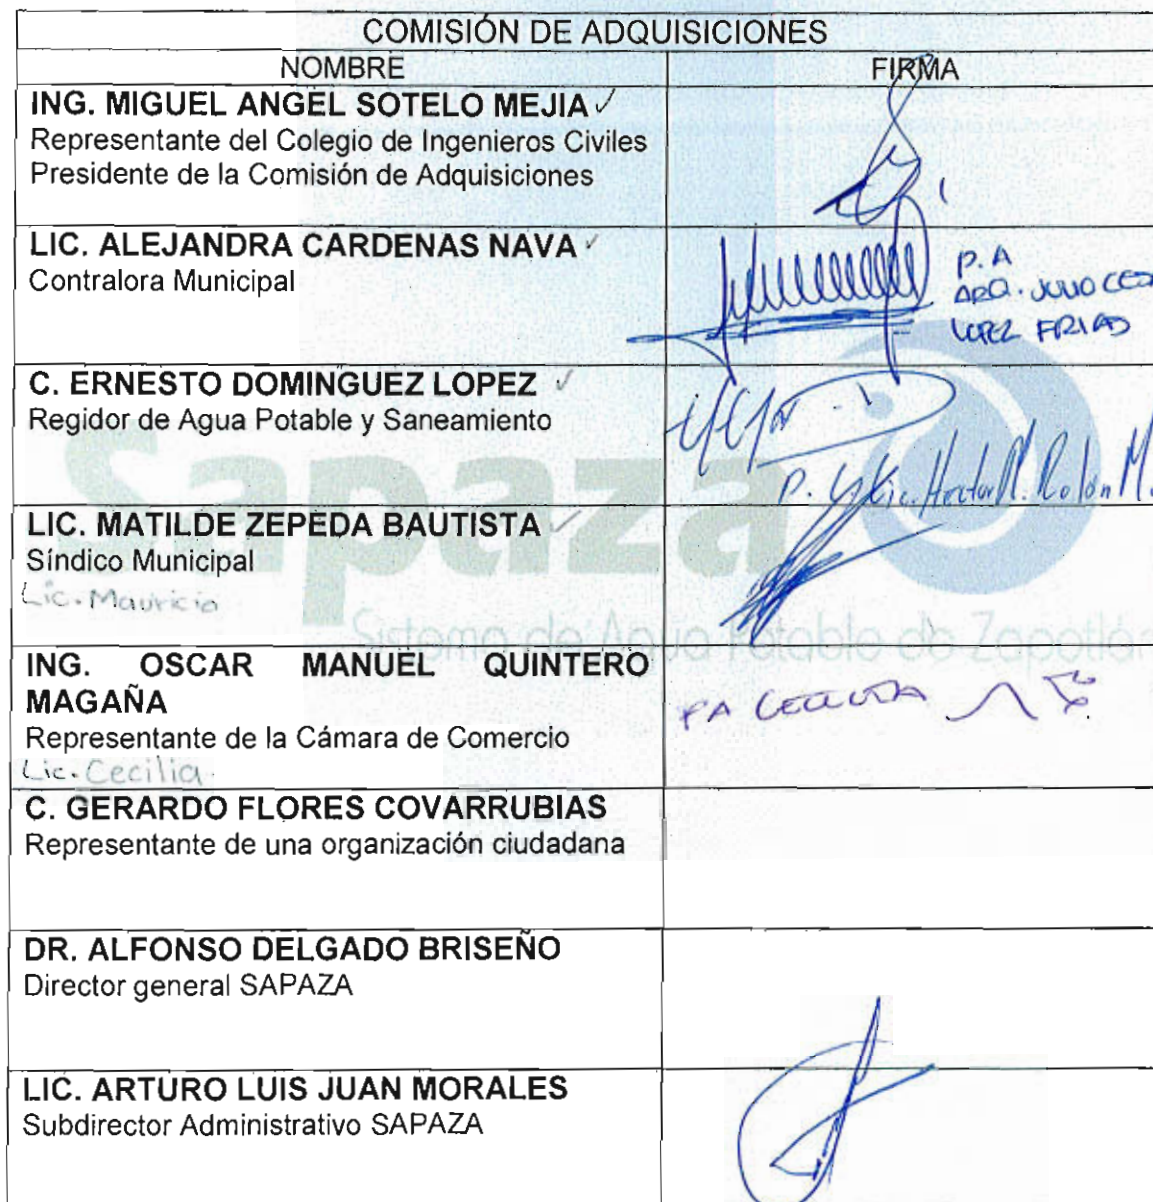 COMISIÓN DE ADQUISICIONES
NOMBRE FIRMA
ING. MIGUEL ANGEL SOTELO MEJIA
Representante del Colegio de Ingenieros Civiles
Presidente de la Comisión de Adquisiciones
LIC. ALEJANDRA CARDENAS NAVA
Contralora Municipal
P.A
ARQ. JULIO CES
LOPEZ FRIAS
C. ERNESTO DOMINGUEZ LOPEZ
Regidor de Agua Potable y Saneamiento
Lic. Hector M. Rolón M.
Sapaza
LIC. MATILDE ZEPEDA BAUTISTA
Síndico Municipal
Lic. Mauricio
Sistema de Agua Potable de Zapotlán
ING. OSCAR MANUEL QUINTERO
MAGAÑA
Representante de la Cámara de Comercio
Lic. Cecilia
PA CECILIA
C. GERARDO FLORES COVARRUBIAS
Representante de una organización ciudadana
DR. ALFONSO DELGADO BRISEÑO
Director general SAPAZA
LIC. ARTURO LUIS JUAN MORALES
Subdirector Administrativo SAPAZA